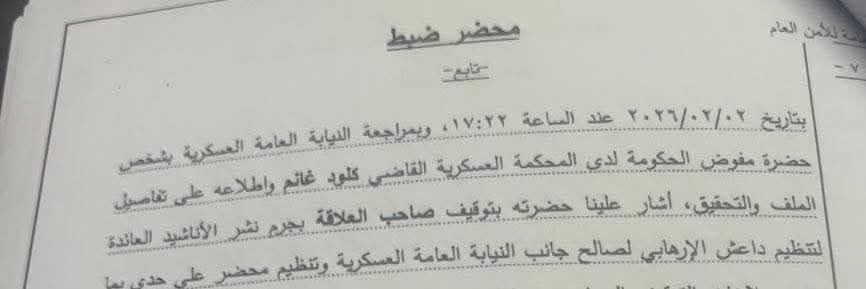 للأمن العام
- ٧ -
محضر ضبط
-تابع-
بتاريخ ٢٠٢٦/٠٢/٠٢ عند الساعة ١٧:٢٢، وبمراجعة النيابة العامة العسكرية بشخص
حضرة مفوض الحكومة لدى المحكمة العسكرية القاضي كلود غانم واطلاعه على تفاصيل
الملف والتحقيق، أشار علينا حضرته بتوقيف صاحب العلاقة بجرم نشر الأناشيد العائدة
لتنظيم داعش الإرهابي لصالح جانب النيابة العامة العسكرية وتنظيم محضر على حدى بما